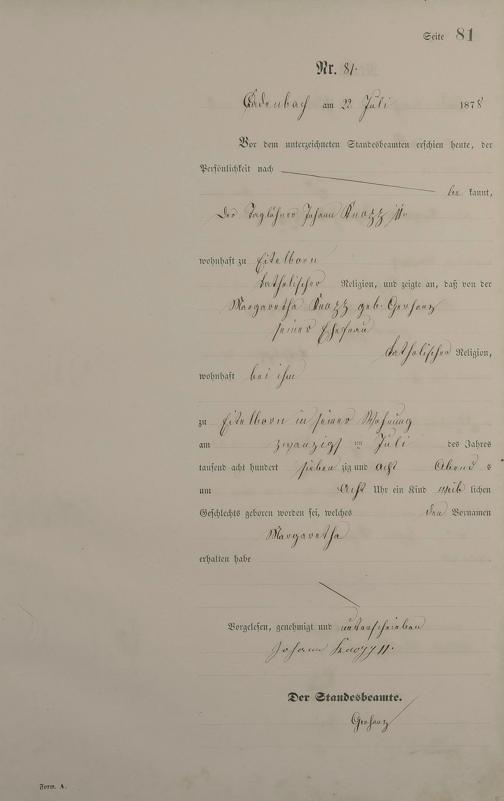 Seite 81
Nr. 81.
Cadenbach am 22 Juli 1878
Vor dem unterzeichneten Standesbeamten erschien heute, der
Persönlichkeit nach
be kannt,
Der Taglöhner Johann Knopp II.
wohnhaft zu Eitelborn
katholischer Religion, und zeigte an, daß von der
Margaretha Knopp geb. Gerharz
seiner Ehefrau
katholischer Religion,
wohnhaft bei ihm
zu Eitelborn in seiner Wohnung
am zwanzigs ten Juli des Jahres
tausend acht hundert sieben zig und acht Abend s
um acht Uhr ein Kind weib lichen
Geschlechts geboren worden sei, welches den Vornamen
Margaretha
erhalten habe
Vorgelesen, genehmigt und unterschrieben
Johann Knopp II.
Der Standesbeamte.
Gerharz
Form. A.